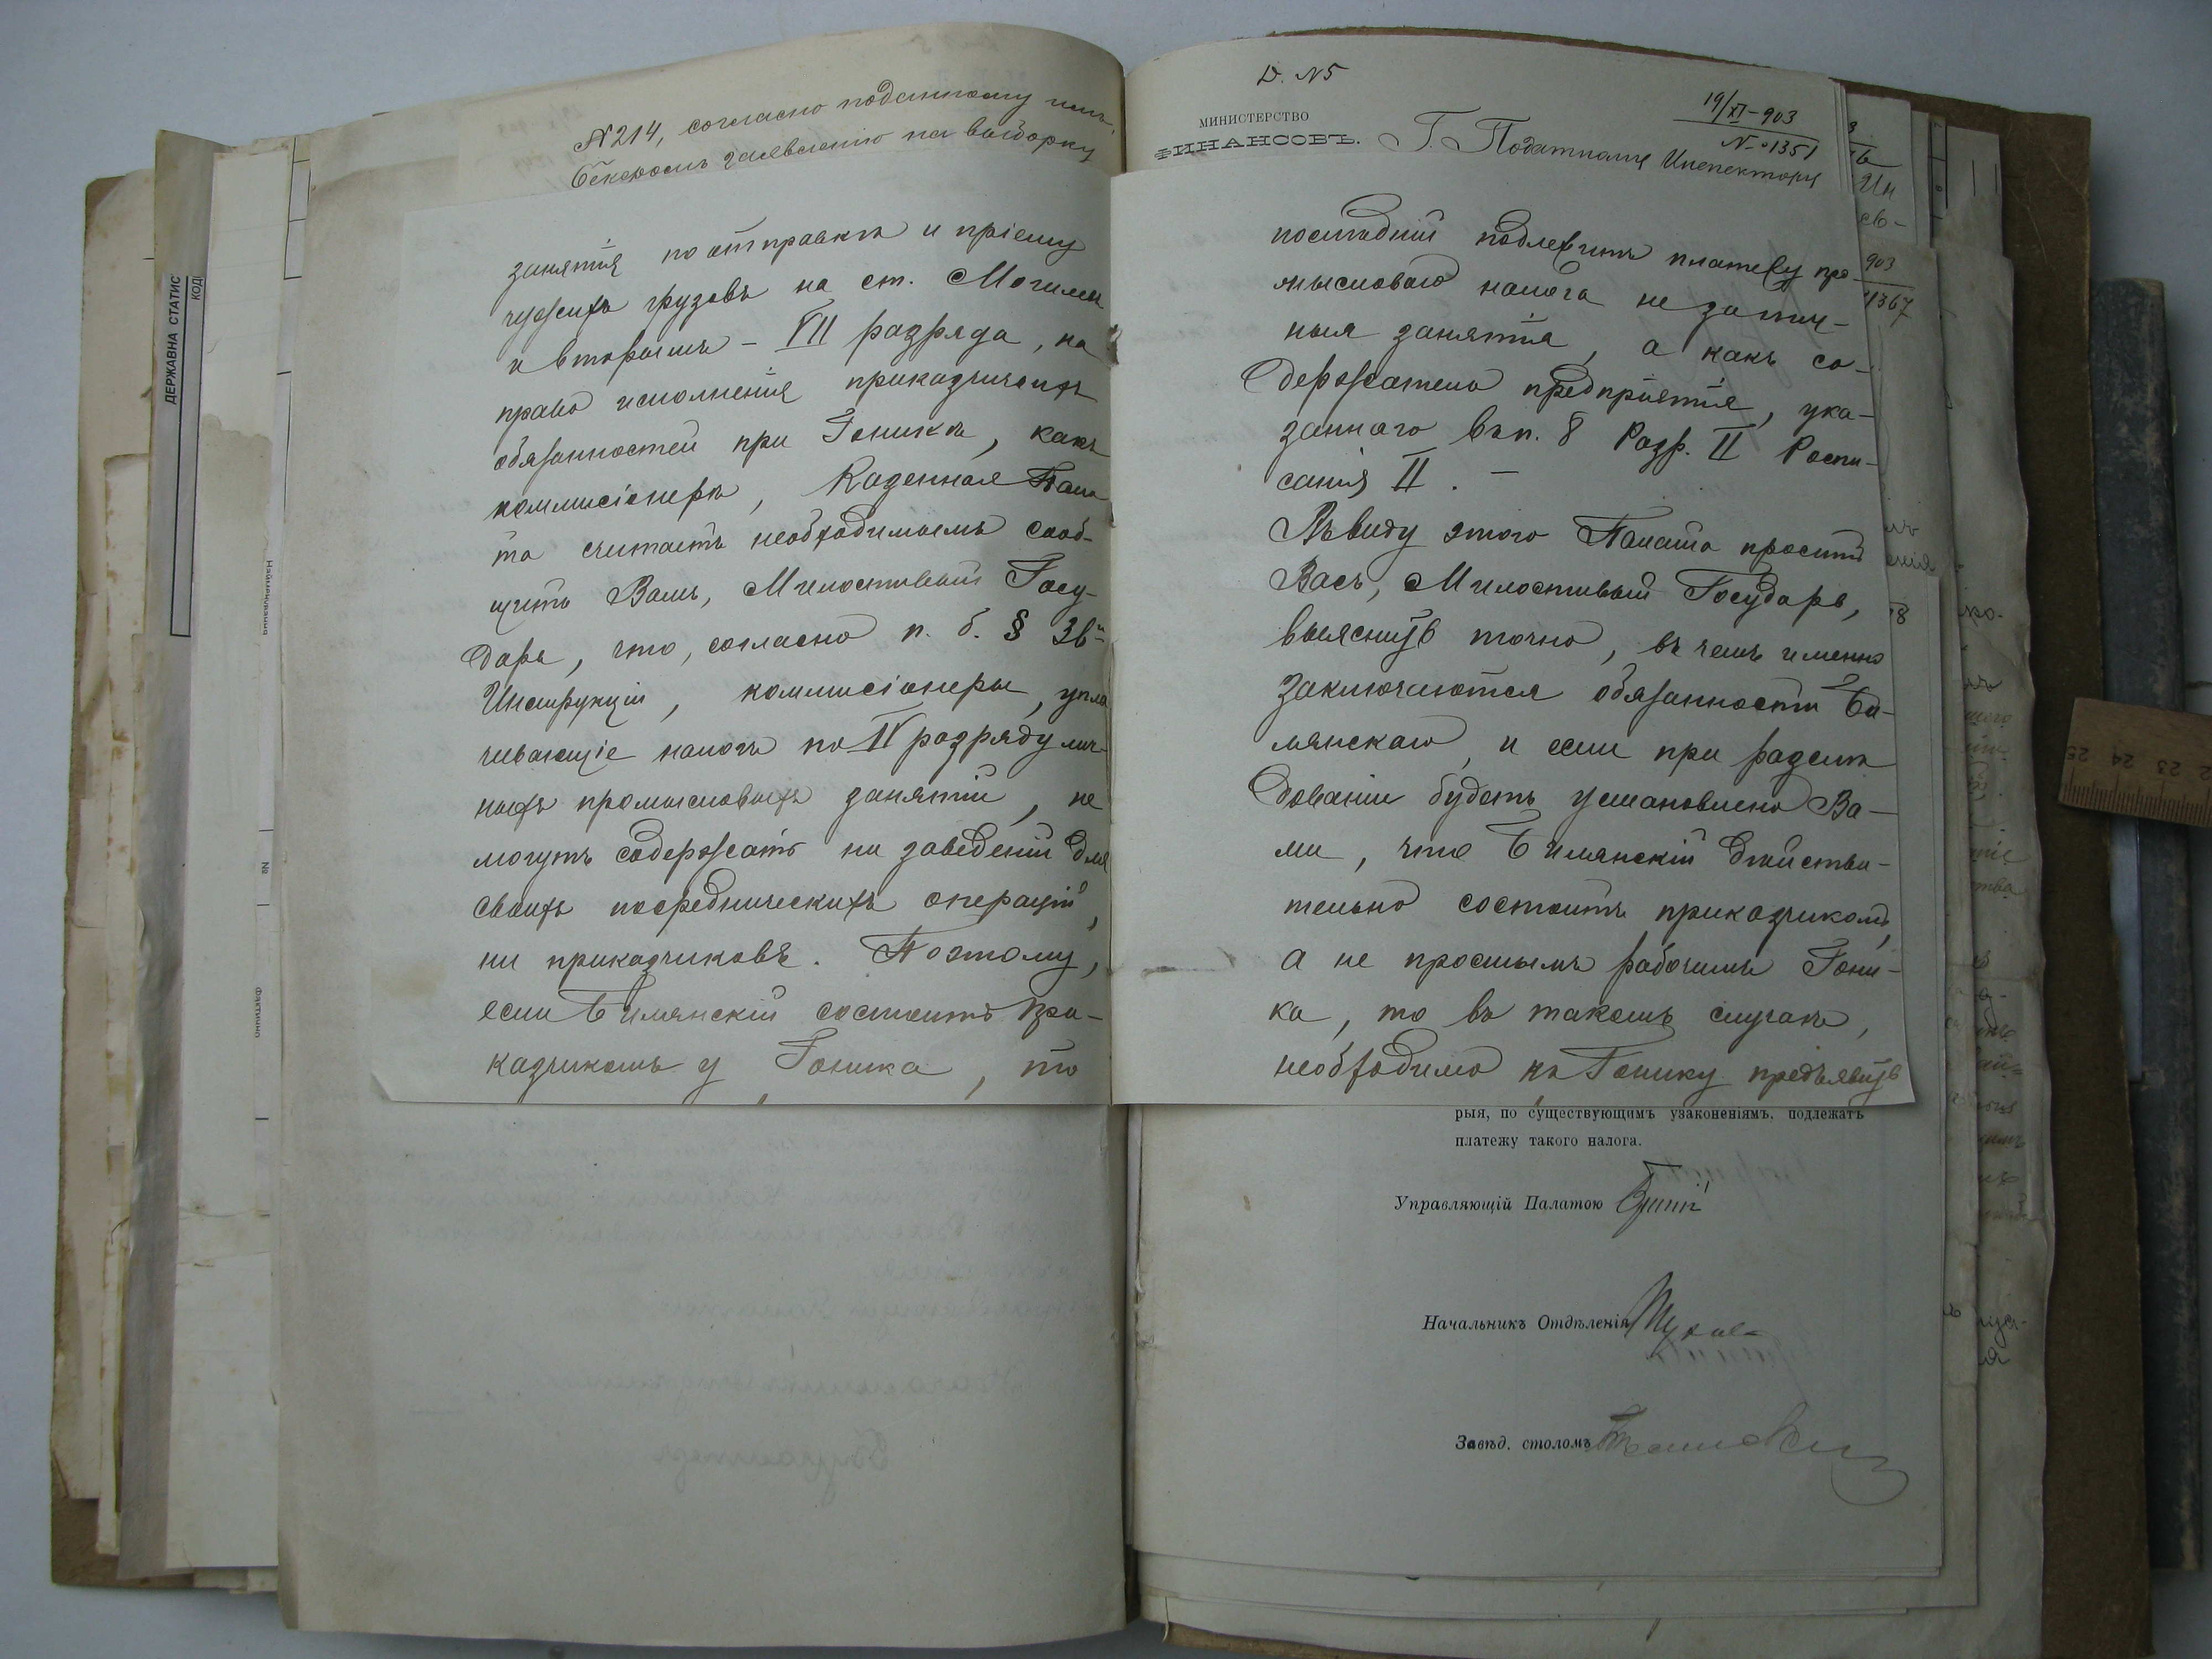 №214, согласно поданному имъ,
заявленію на выборку
занятія по отправкѣ и пріему
чужихъ грузовъ на ст. Могилевъ
и вторымъ – VII разряда, на
право исполненія прикащичьихъ
обязанностей при Гоникѣ, какъ
коммисіонерѣ, Казенная Пала
та считаетъ необходимымъ сооб-
щить Вамъ, Милостивый Госу-
дарь, что, согласно п. б. § 36
Инструкціи, коммисіонеры, упла
чивающіе налогъ по II разряду лич-
ныхъ промысловыхъ занятій, не
могутъ содержать ни заведеній для
своихъ посредническихъ операцій,
ни приказчиковъ. Поэтому,
если Билянскій состоитъ при-
казчикомъ у Гоника, то
D. №5
19/XI-903
№ 1351
МИНИСТЕРСТВО
ФИНАНСОВЪ.
Г. Податному Инспектору
послѣдній подлежитъ платежу про-
мысловаго налога не за лич-
ныя занятія, а какъ со-
держатель предпріятія, ука-
заннаго въ п. 8 Разр. II Роспи-
санія II. –
Въ виду этого Палата проситъ
Васъ, Милостивый Государь,
выяснить точно, въ чемъ именно
заключаются обязанности Би-
лянскаго, и если при разслѣ
дованіи будетъ установлено Ва-
ми, что Билянскій дѣйстви-
тельно состоитъ приказчикомъ,
а не простымъ рабочимъ Гони-
ка, то въ такомъ случаѣ,
необходимо къ Гонику предъявить
рыя, по существующимъ узаконеніямъ, подлежатъ
платежу такого налога.
Управляющій Палатою
Начальникъ Отдѣленія
Завѣд. столомъ
ДЕРЖАВНА СТАТИС
КОД
Найменування
№
фактично
903
1367
25 24 23